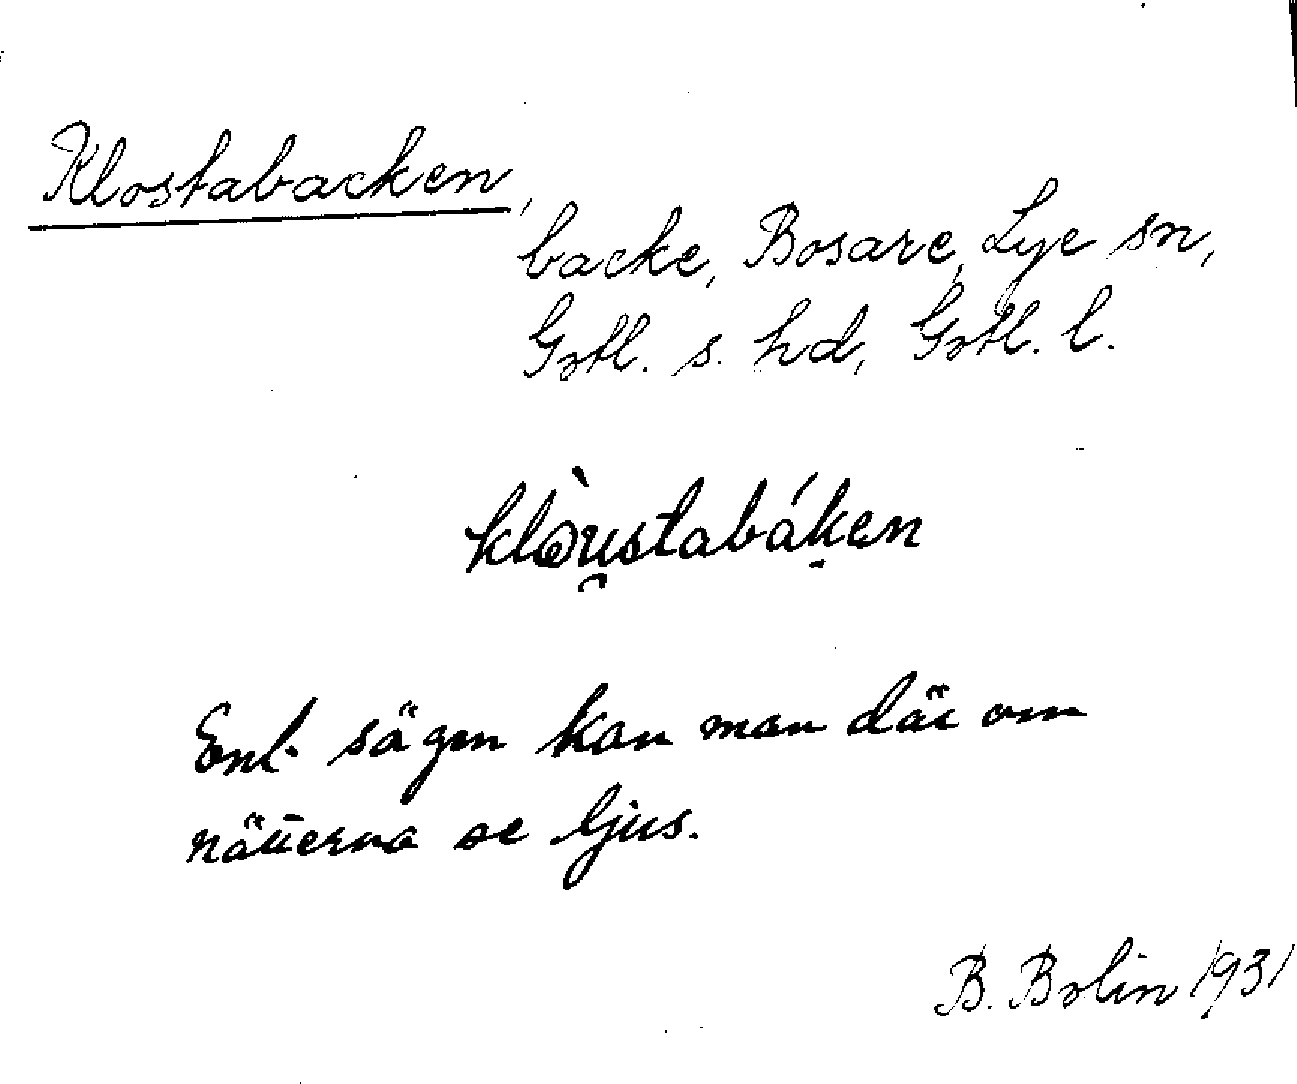 Klostabacken,
backe, Bosare, Lye sn,
Gotl. s. hd, Gotl. l.
klòu̯stabák̠en
Enl. sägen kan man där om
nätterna se ljus.
B. Bolin 1931